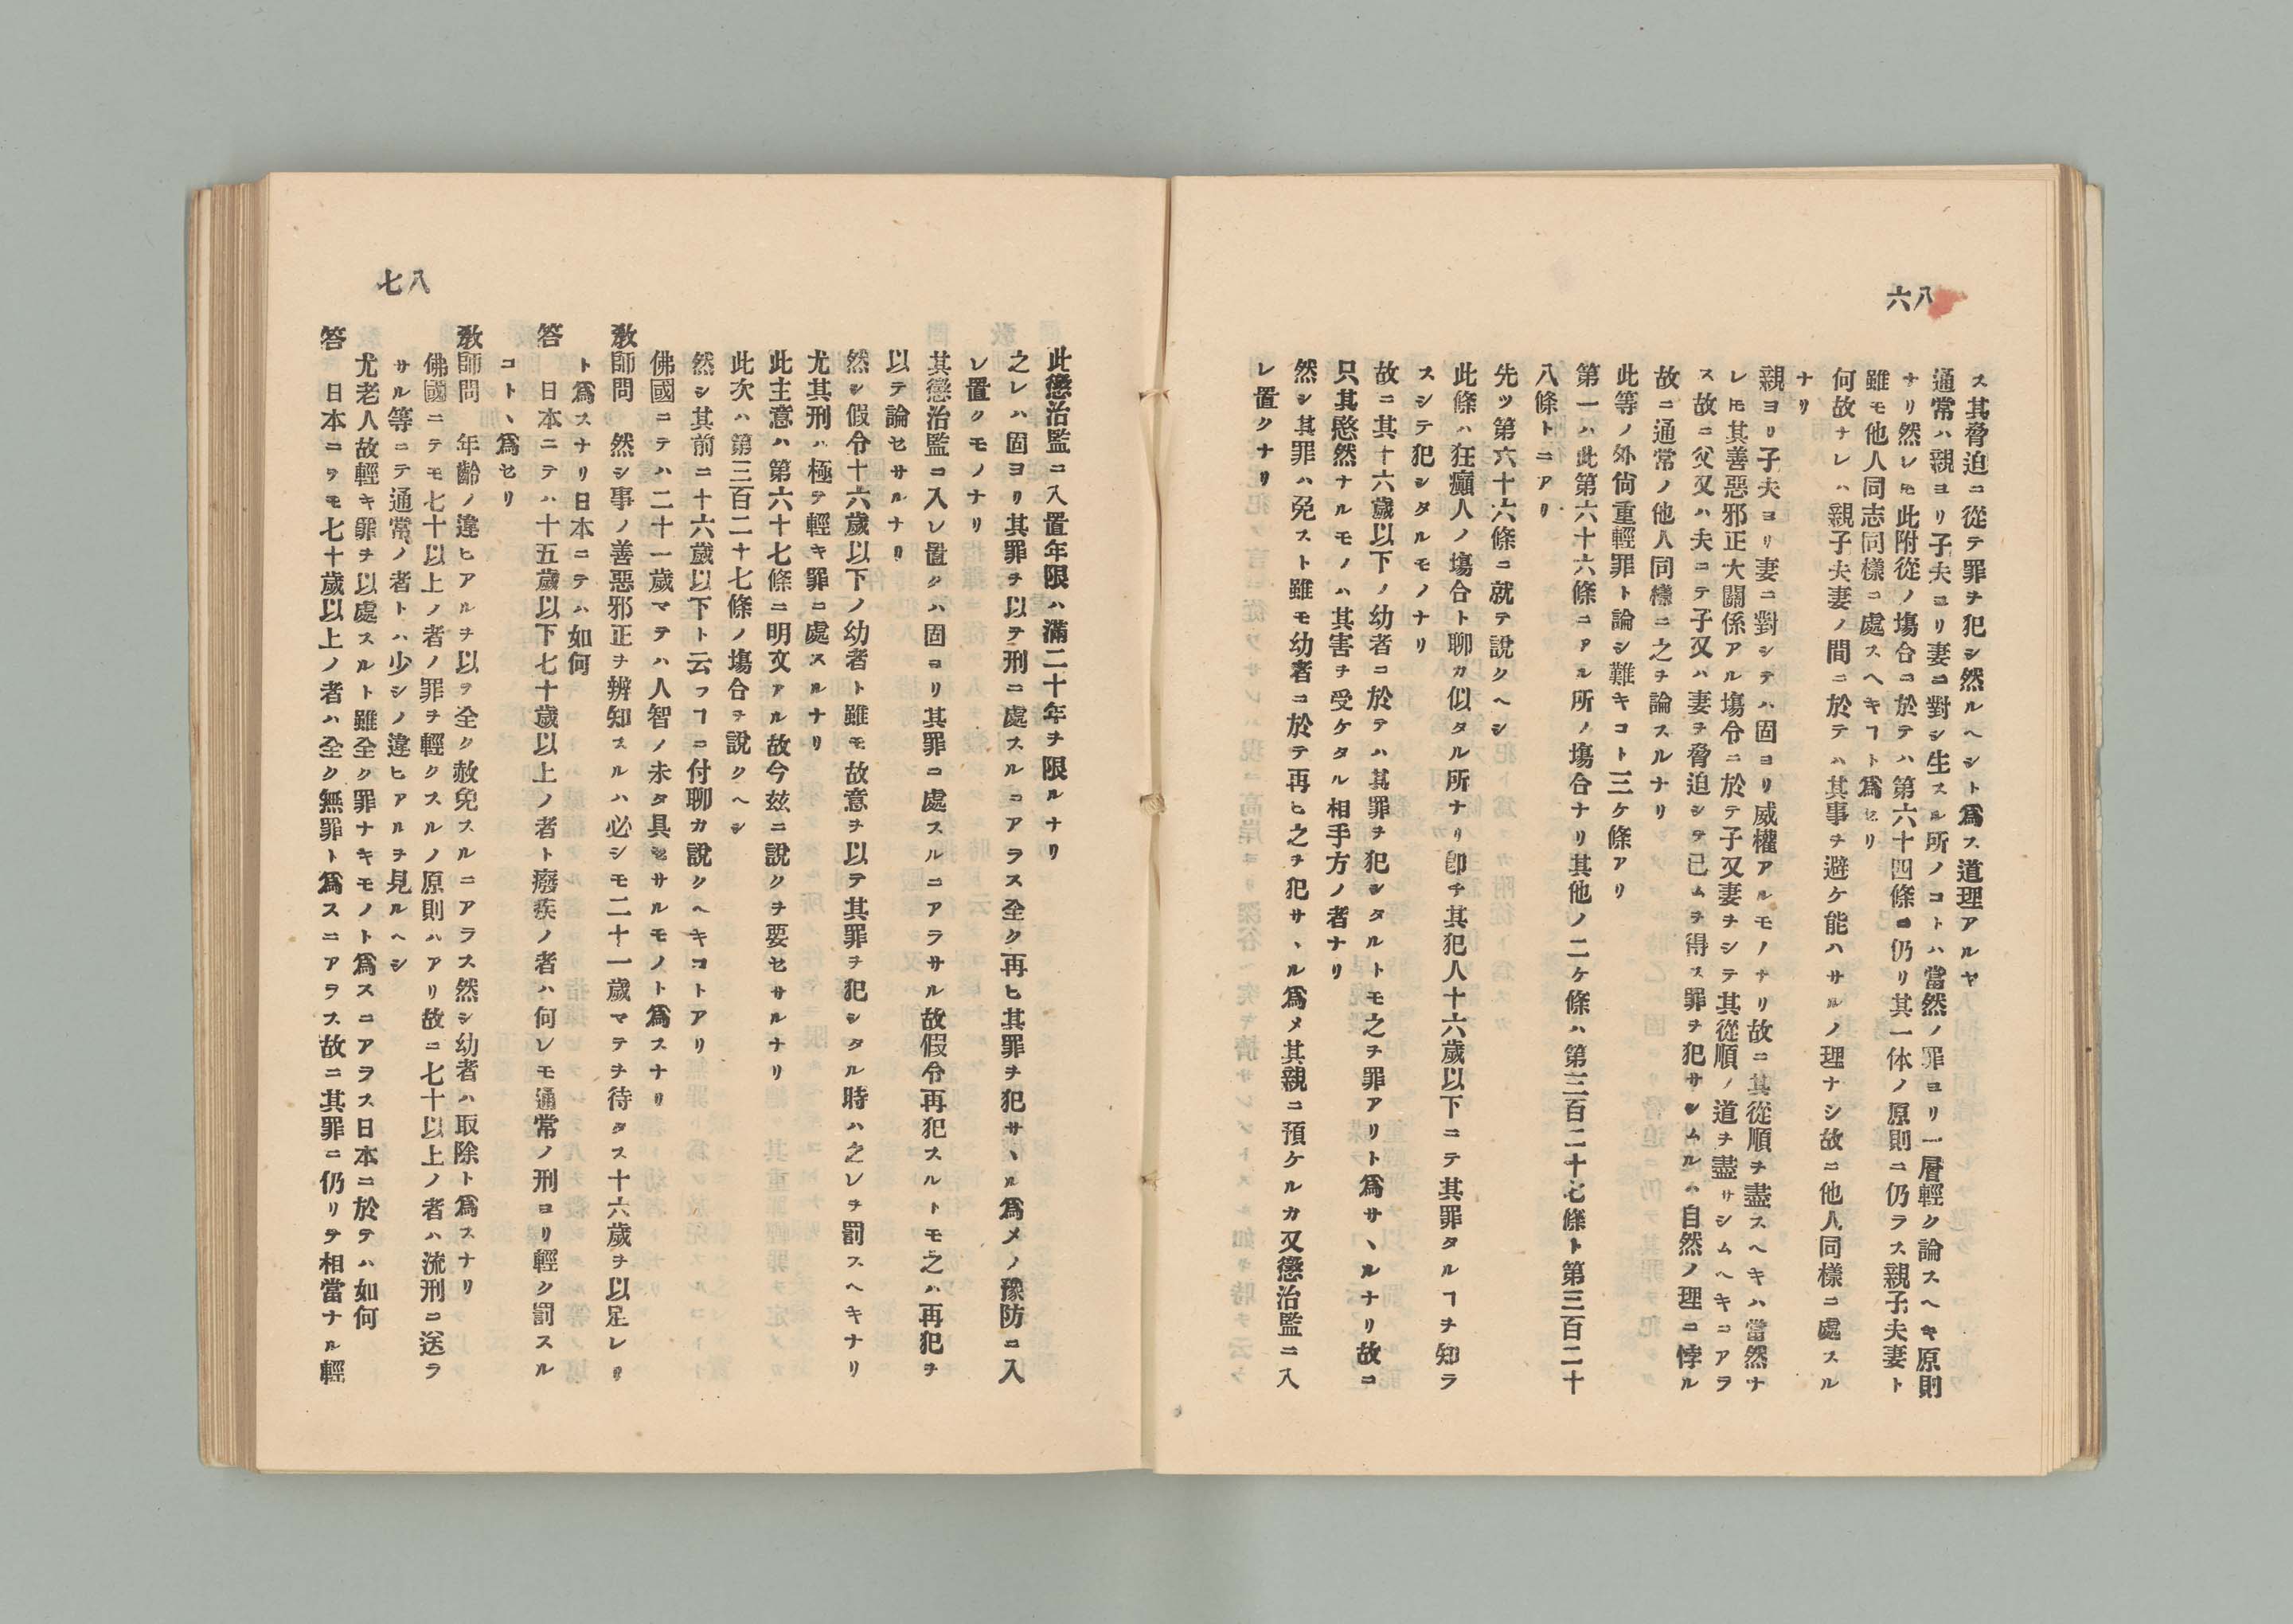 八六
ス其脅迫ニ從テ罪ヲ犯シ然ルヘシト爲ス道理アルヤ
通常ハ親ヨリ子夫ヨリ妻ニ對シ生スル所ノコトハ當然ノ罪ヨリ一層輕ク論スヘキ原則
ナリ然レ𪜈此附從ノ塲合ニ於テハ第六十四條ニ仍リ其一体ノ原則ニ仍ラス親子夫妻ト
雖モ他人同志同樣ニ處スヘキヿト爲セリ
何故ナレハ親子夫妻ノ間ニ於テハ其事ヲ避ケ能ハサルノ理ナシ故ニ他人同樣ニ處スル
ナリ
親ヨリ子夫ヨリ妻ニ對シテハ固ヨリ威權アルモノナリ故ニ其從順ヲ盡スヘキハ當然ナ
レ𪜈其善惡邪正大關係アル塲合ニ於テ子又妻ヲシテ其從順ノ道ヲ盡サシムヘキニアラ
ス故ニ父又ハ夫ニテ子又ハ妻ヲ脅迫シテ已ムヲ得ス罪ヲ犯サシムルハ自然ノ理ニ悖ル
故ニ通常ノ他人同樣ニ之ヲ論スルナリ
此等ノ外尙重輕罪ト論シ難キコト三ケ條アリ
第一ハ此第六十六條ニアル所ノ塲合ナリ其他ノ二ケ條ハ第三百二十七條ト第三百二十
八條トニアリ
先ツ第六十六條ニ就テ說クヘシ
此條ハ狂癲人ノ塲合ト聊カ似タル所ナリ卽チ其犯人十六歲以下ニテ其罪タルヿヲ知ラ
スシテ犯シタルモノナリ
故ニ其十六歲以下ノ幼者ニ於テハ其罪ヲ犯シタルトモ之ヲ罪アリト爲サヽルナリ故ニ
只其愍然ナルモノハ其害ヲ受ケタル相手方ノ者ナリ
然シ其罪ハ免スト雖モ幼者ニ於テ再ヒ之ヲ犯サヽル爲メ其親ニ預ケルカ又懲治監ニ入
レ置クナリ
八七
此懲治監ニ入置年限ハ滿二十年ヲ限ルナリ
之レハ固ヨリ其罪ヲ以テ刑ニ處スルニアラス全ク再ヒ其罪ヲ犯サヽル爲メノ豫防ニ入
レ置クモノナリ
其懲治監ニ入レ置クハ固ヨリ其罪ニ處スルニアラサル故假令再犯スルトモ之ハ再犯ヲ
以テ論セサルナリ
然シ假令十六歲以下ノ幼者ト雖モ故意ヲ以テ其罪ヲ犯シタル時ハ之レヲ罰スヘキナリ
尤其刑ハ極テ輕キ罪ニ處スルナリ
此主意ハ第六十七條ニ明文アル故今玆ニ說クヲ要セサルナリ
此次ハ第三百二十七條ノ塲合ヲ說クヘシ
然シ其前ニ十六歲以下ト云フヿニ付聊カ說クヘキコトアリ
佛國ニテハ二十一歲マテハ人智ノ未タ具セサルモノト爲スナリ
敎師問　然シ事ノ善惡邪正ヲ辨知スルハ必シモ二十一歲マテヲ待タス十六歲ヲ以足レリ
ト爲スナリ日本ニテハ如何
答　日本ニテハ十五歲以下七十歲以上ノ者ト癈疾ノ者ハ何レモ通常ノ刑ヨリ輕ク罰スル
コトヽ爲セリ
敎師問　年齡ノ違ヒアルヲ以テ全ク赦免スルニアラス然シ幼者ハ取除ト爲スナリ
佛國ニテモ七十以上ノ者ノ罪ヲ輕クスルノ原則ハアリ故ニ七十以上ノ者ハ流刑ニ送ラ
サル等ニテ通常ノ者トハ少シノ違ヒアルヲ見ルヘシ
尤老人故輕キ罪ヲ以處スルト雖全ク罪ナキモノト爲スニアラス日本ニ於テハ如何
答　日本ニテモ七十歲以上ノ者ハ全ク無罪ト爲スニアラス故ニ其罪ニ仍リテ相當ナル輕